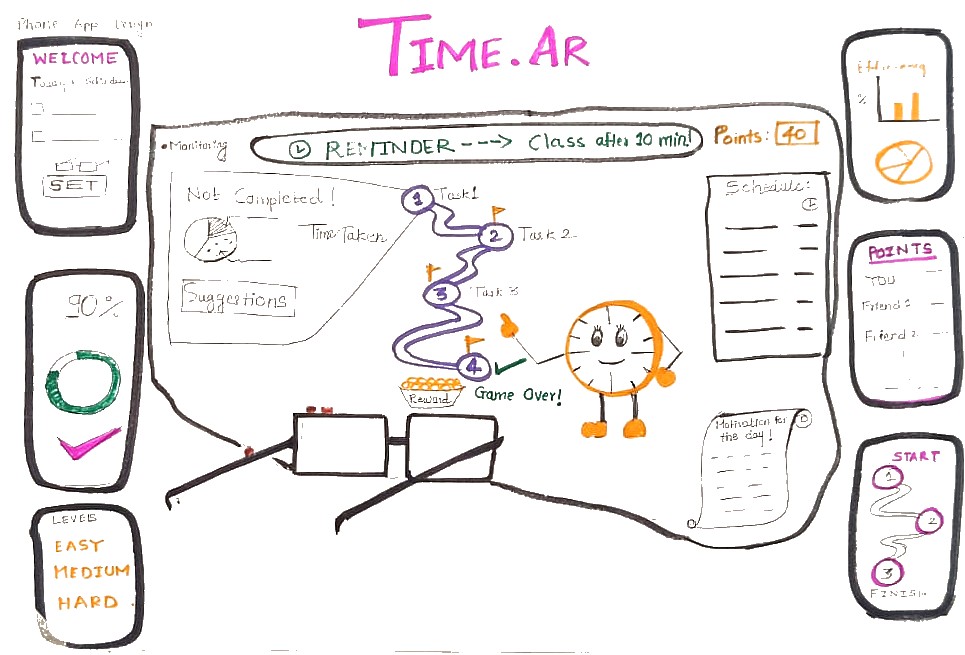 Phone App Design
TIME.AR
WELCOME
Today's Schedule
SET
90%
LEVELS
EASY
MEDIUM
HARD.
• Monitoring
REMINDER ----> Class after 10 min!
Points: 40
Not Completed!
Time Taken
Suggestions
1 Task 1
2 Task 2
3 Task 3
4
Reward
Game Over!
Schedule:
Motivation for
the day!
Efficiency
%
POINTS
YOU
Friend 1
Friend 2
START
1
2
3
FINISH